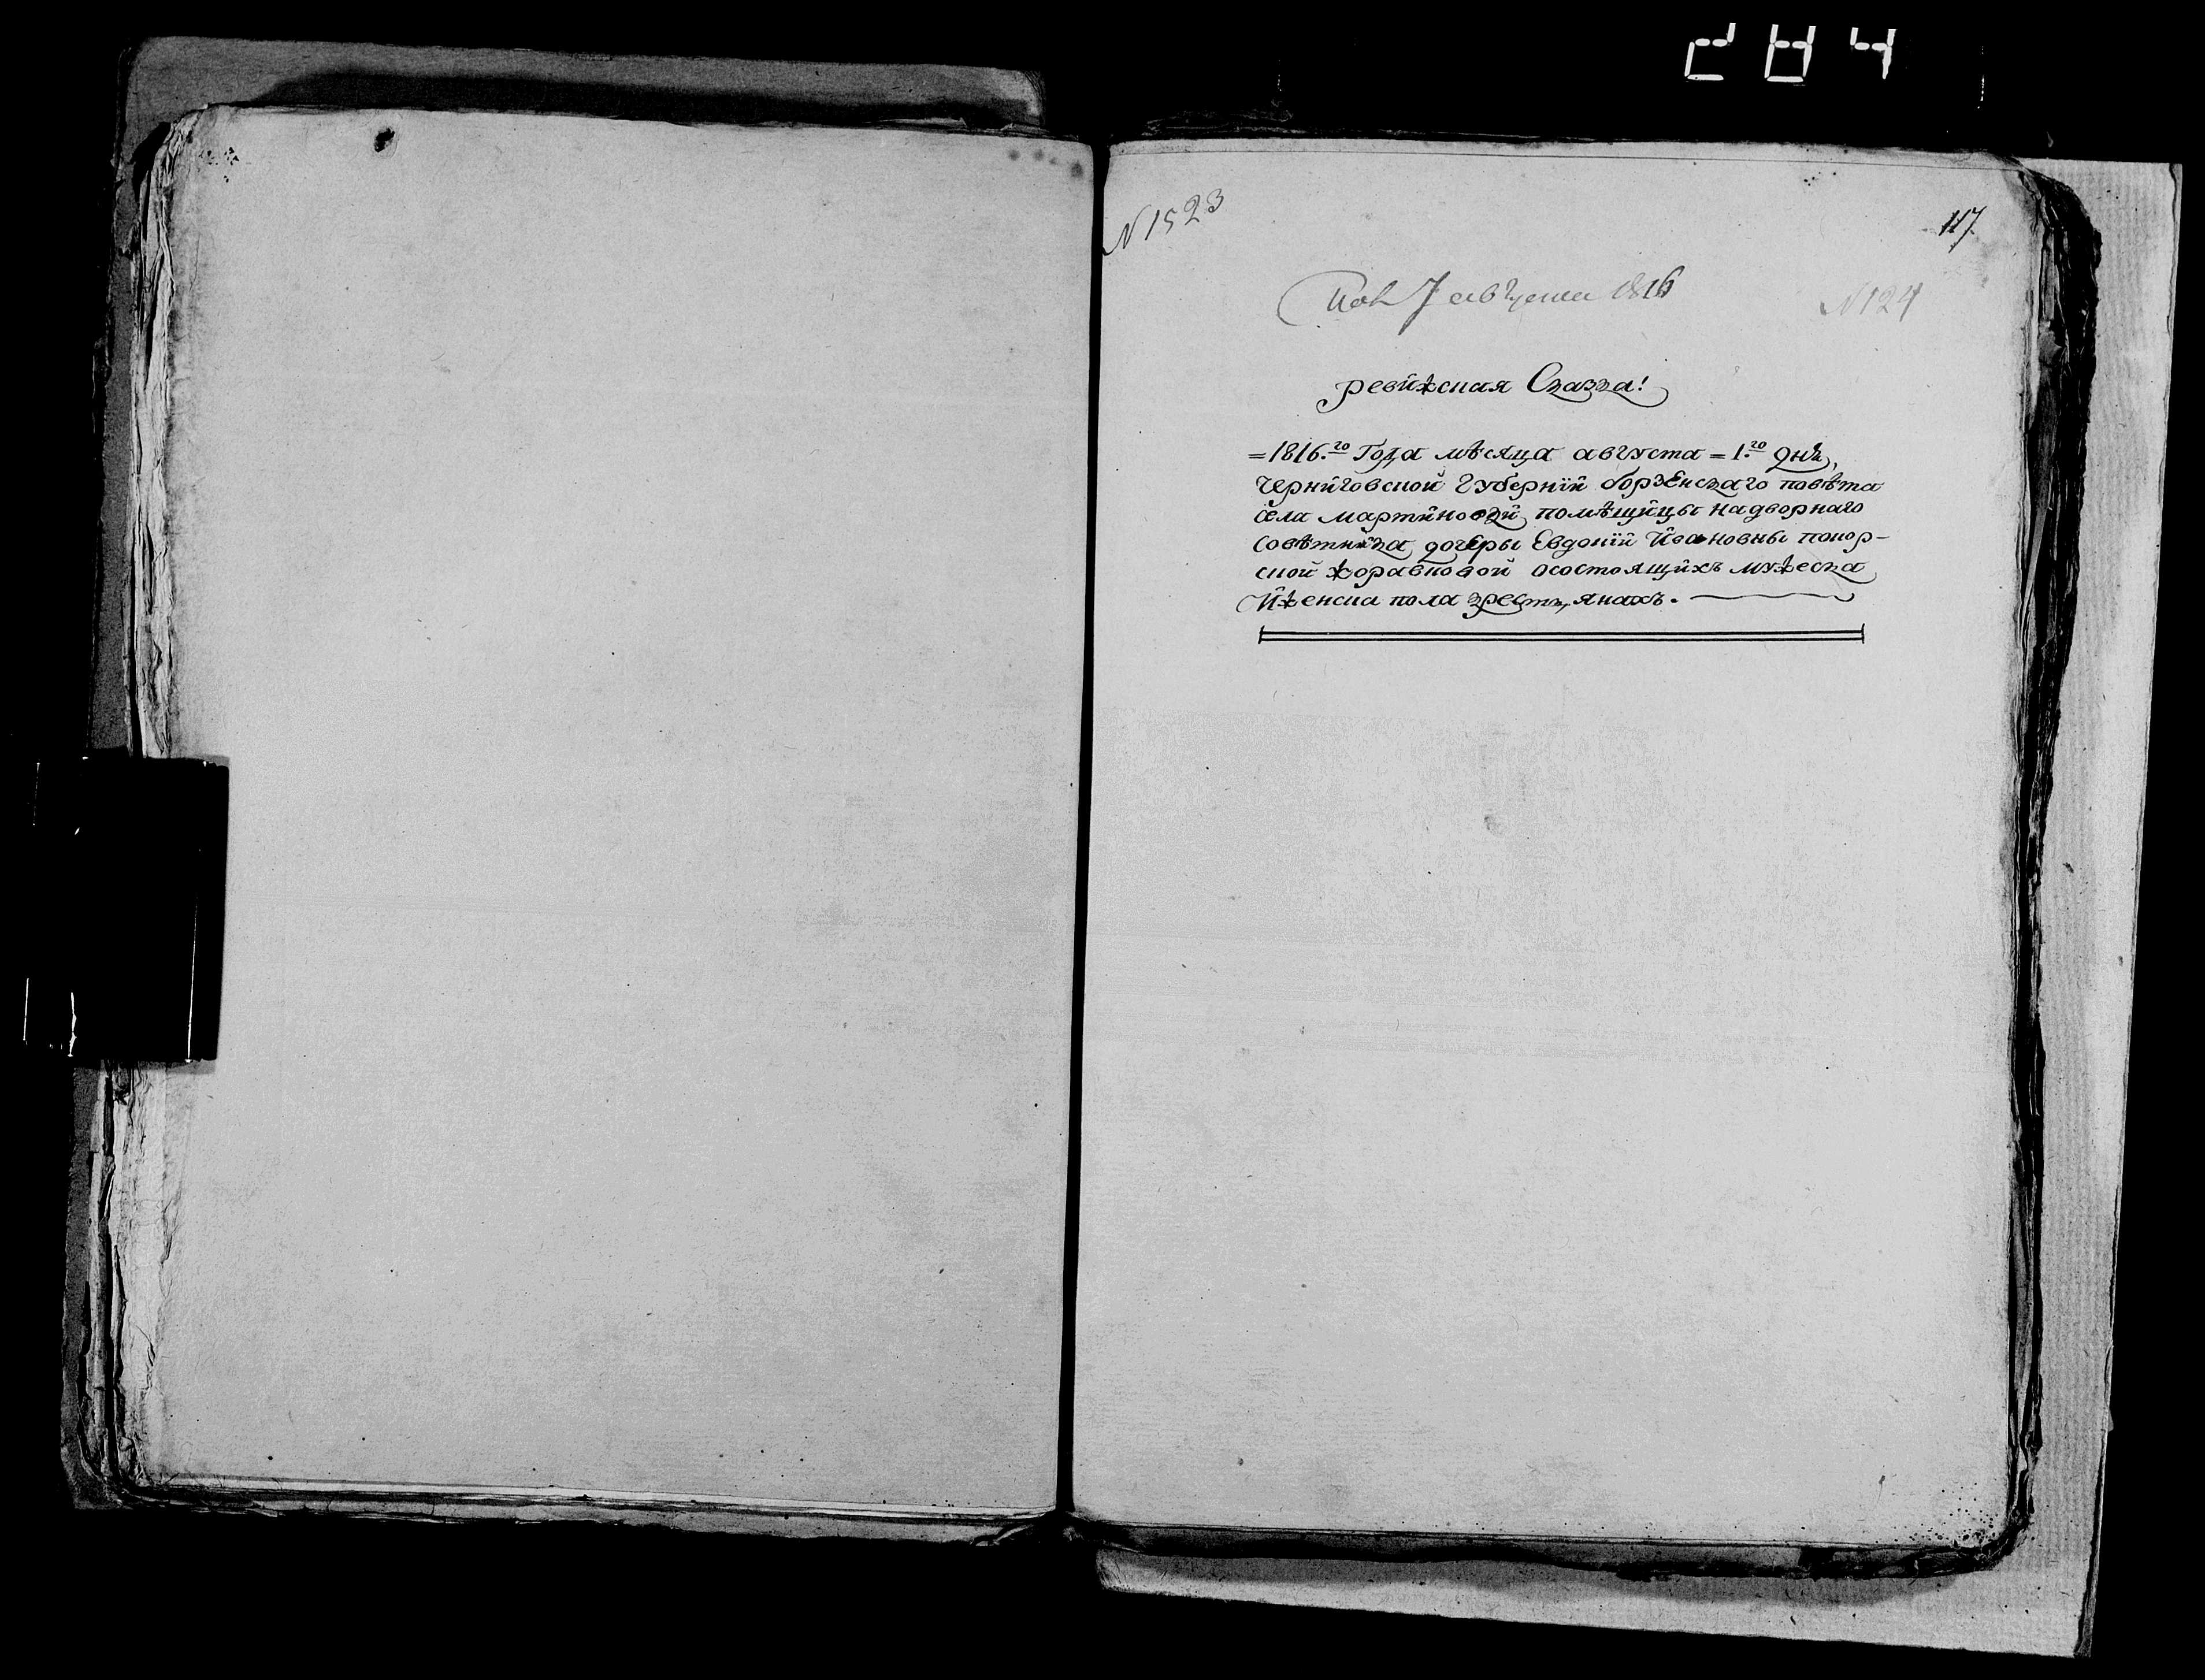 284
N 1523
117
7 августа 1816
N 124
Ревижская Сказка!
=1816.го Года мѣсяца августа =1.го дня,
Черниговской Губерніи борзенскаго повѣта
села Мартиновки, помѣщицы надворнаго
совѣтника дочеры Евдокіи Йвановны покор-
ской жоравковой осостоящихъ мужеска
Йженска пола крестьянахъ.